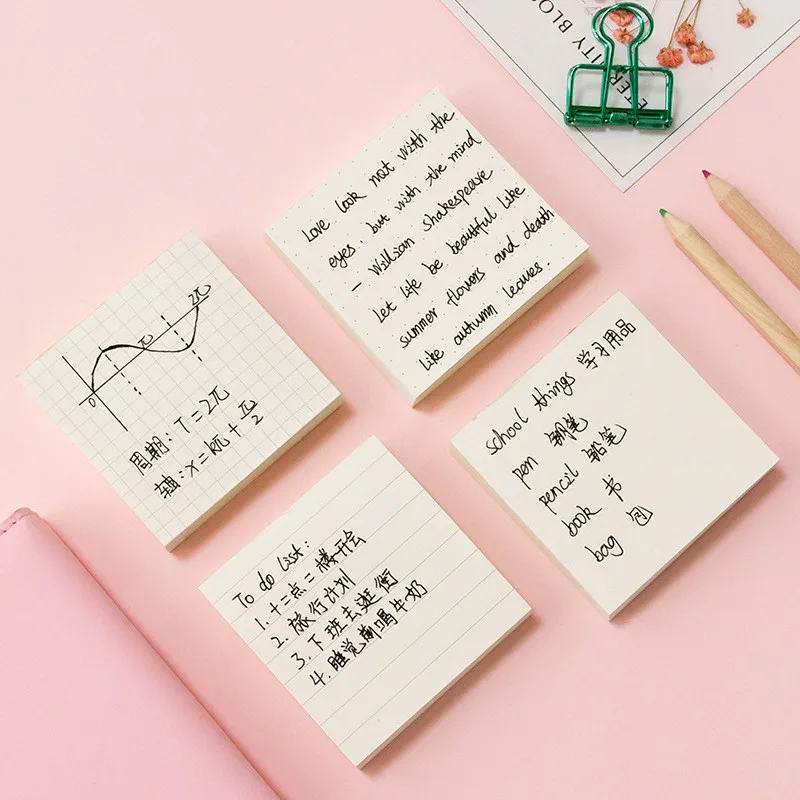 TERNITY BLOO
Love look not with the
eyes, but with the mind
- William Shakespeare
Let life be beautiful like
summer flowers and death
like autumn leaves.
2π
π
0
周期: T=2π
轴: x=kπ+π/2
school things 学习用品
pen 钢笔
pencil 铅笔
book 书
bag 包
To do list:
1. 十二点二楼开会
2. 旅行计划
3. 下班去逛街
4. 睡觉前喝牛奶